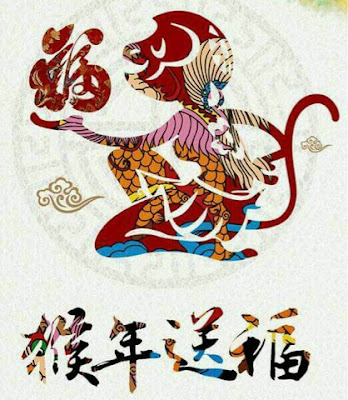 福
猴年送福